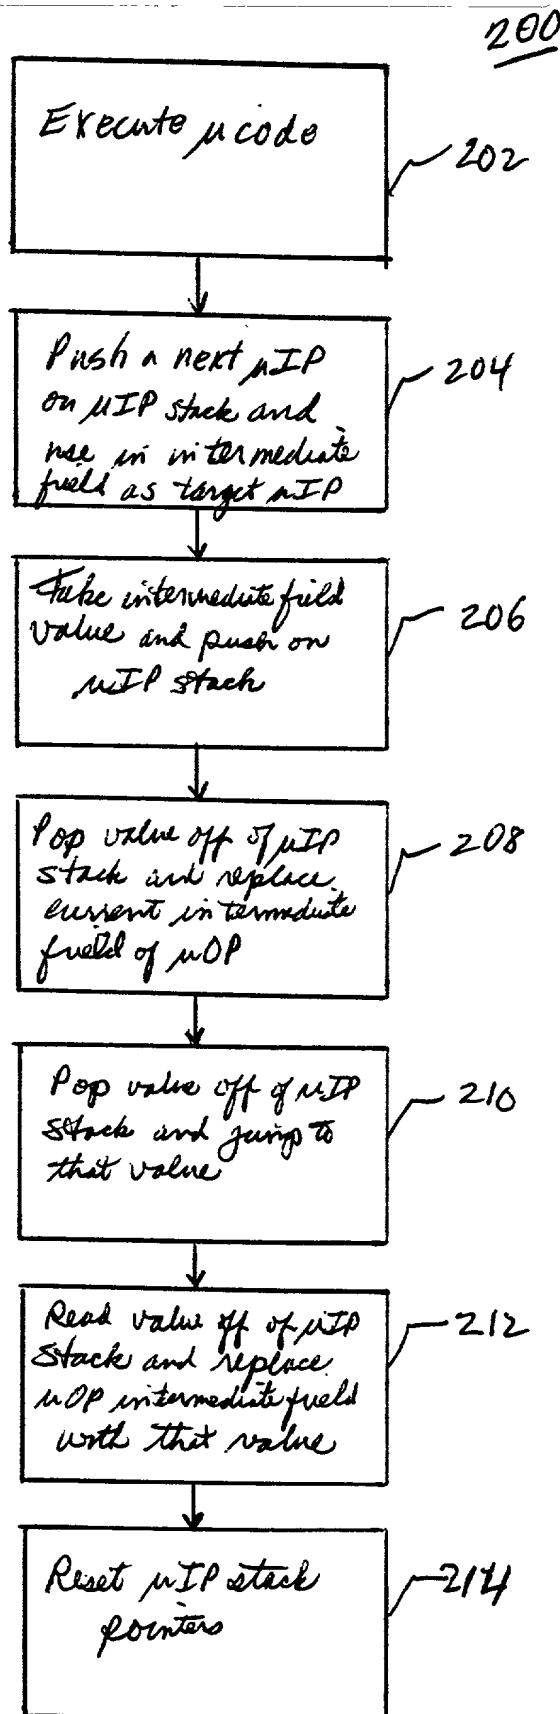 200
Execute μcode
202
Push a next μIP
on μIP stack and
use in intermediate
field as target μIP
204
Take intermediate field
value and push on
μIP stack
206
Pop value off of μIP
stack and replace
current intermediate
field of μOP
208
Pop value off of μIP
stack and jump to
that value
210
Read value off of μIP
stack and replace
μOP intermediate field
with that value
212
Reset μIP stack
pointers
214